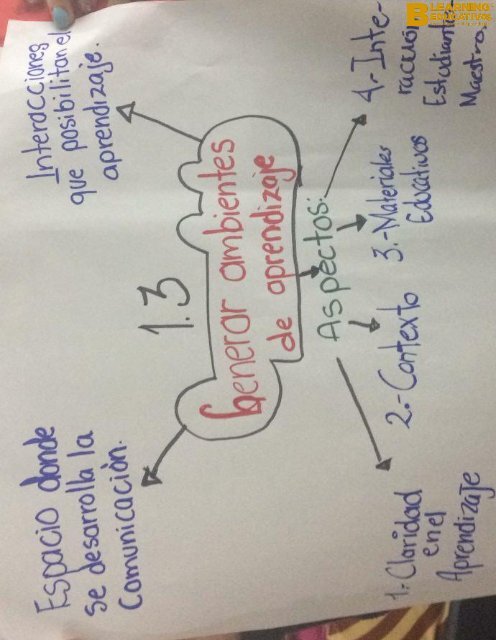 1.3
Espacio donde
se desarrolla la
Comunicación.
Interacciones
que posibilitan el
aprendizaje.
Generar ambientes
de aprendizaje
Aspectos:
1.- Claridad
en el
Aprendizaje
2.- Contexto
3.- Materiales
Educativos
4.- Inte-
racción
Estudiante
Maestro.
LEARNING
EDUCATIVE